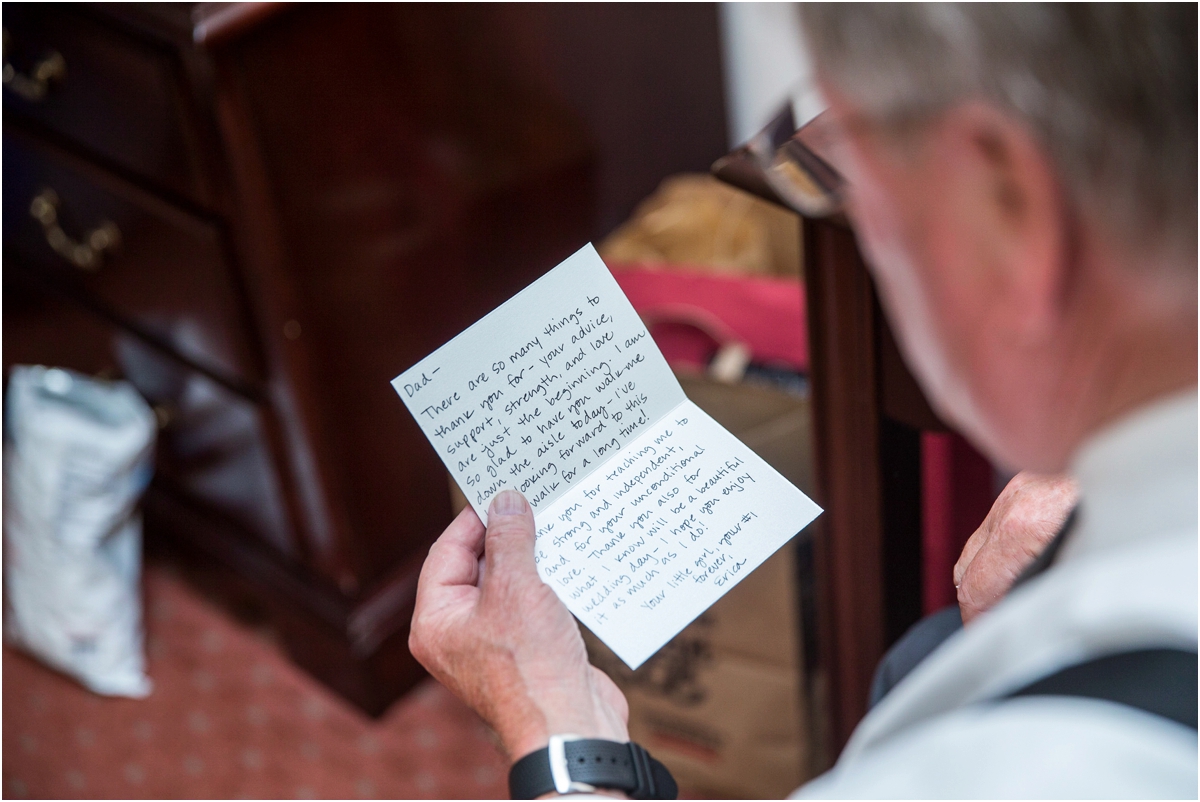 Dad-
There are so many things to
thank you for - your advice,
support, strength, and love
are just the beginning. I am
so glad to have you walk me
down the aisle today - I've
looking forward to this
walk for a long time!
you for teaching me to
strong and independent,
and for your unconditional
love. Thank you also for
what I know will be a beautiful
wedding day - I hope you enjoy
it as much as I do!
Your little girl, your #1
forever,
Erica